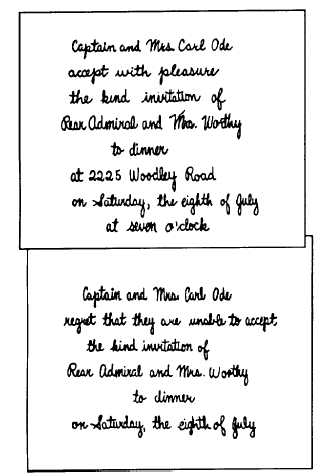 Captain and Mrs. Carl Ode
accept with pleasure
the kind invitation of
Rear Admiral and Mrs. Worthy
to dinner
at 2225 Woodley Road
on Saturday, the eighth of July
at seven o'clock
Captain and Mrs. Carl Ode
regret that they are unable to accept
the kind invitation of
Rear Admiral and Mrs. Worthy
to dinner
on Saturday, the eighth of July